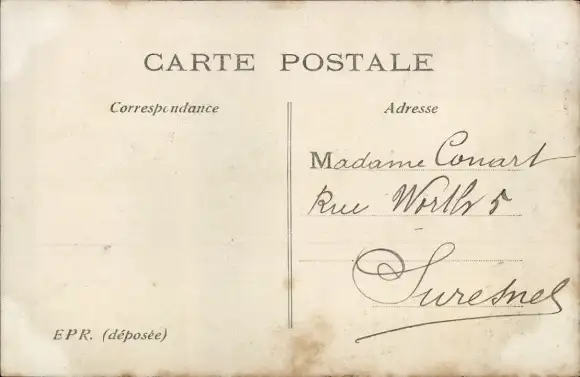 CARTE POSTALE
Correspondance
Adresse
Madame Conart
Rue Worth 5
Suresnes
EPR. (déposée)